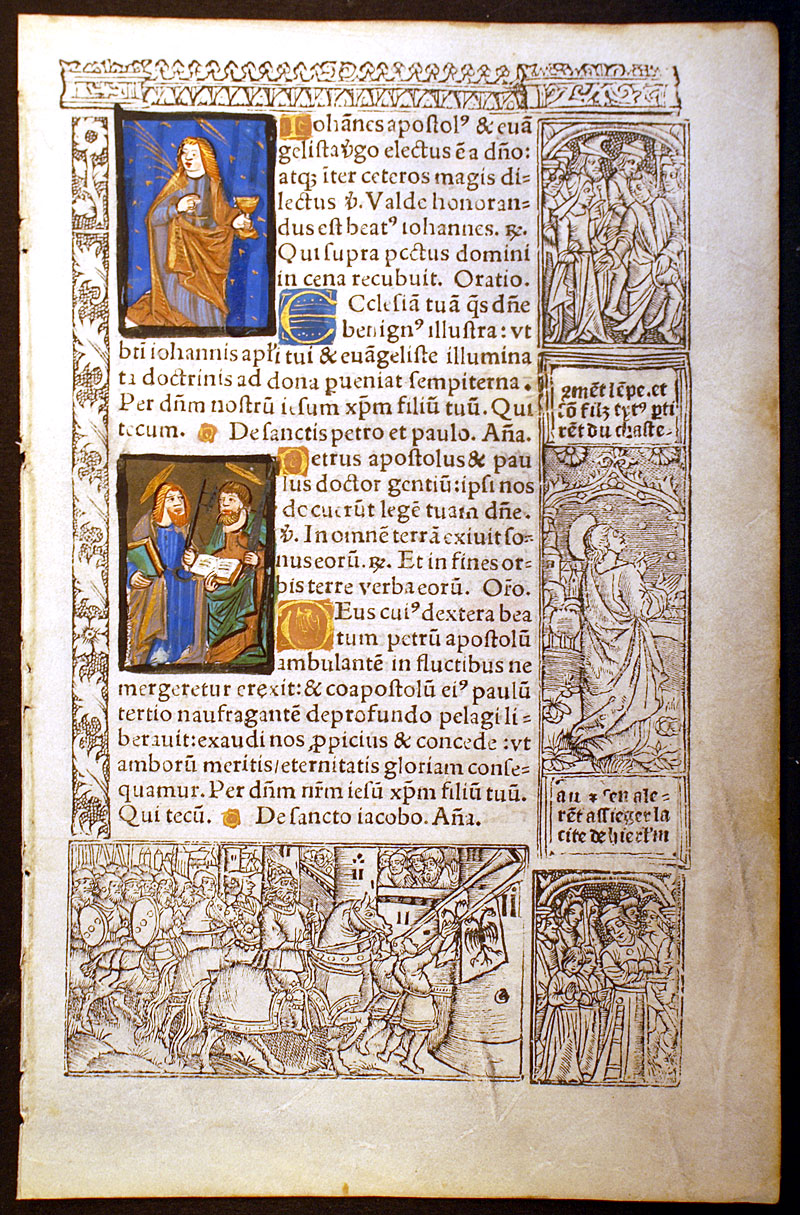 Iohãnes apostolꝰ & euã
gelista v̾go electus ē a dño:
atqꝫ īter ceteros magis di=
lectus ℣. Valde honoran=
dus est beatꝰ iohannes. ℟.
Qui supra pectus domini
in cena recubuit. Oratio.
Eclesiã tuã q̃s dñe
benignꝰ illustra: vt
bti iohannis apl'i tui & euãgeliste illumina
ta doctrinis ad dona pueniat sempiterna.
Per dñm nostrũ iesum xp̃m filiũ tuũ. Qui
tecum. De sanctis petro et paulo. Aña.
Petrus apostolus & pau
lus doctor gentiũ: ipsi nos
docuerũt legẽ tuam dñe.
℣. In omnẽ terrã exiuit so=
nus eorũ. ℟. Et in fines or=
bis terre verba eorũ. Oro.
Deus cuiꝰ dextera bea
tum petrũ apostolũ
ambulantẽ in fluctibus ne
mergeretur erexit: & coapostolũ eiꝰ paulũ
tertio naufragantẽ de profundo pelagi li=
berauit: exaudi nos ꝓpicius & concede: vt
amborũ meritis/eternitatis gloriam conse=
quamur. Per dñm nr̃m iesũ xp̃m filiũ tuũ.
Qui tecũ. De sancto iacobo. Aña.
lẽpe. et
cõ filz tytꝰ ꝑti
rẽt du chaste=
au ⁊ sen ale=
rẽt assieger la
cite de hierl'm